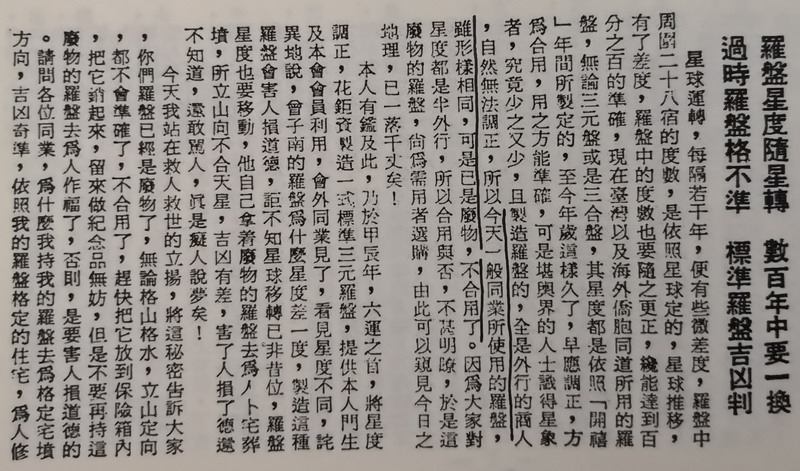 羅盤星度隨星轉　數百年中要一換
過時羅盤格不準　標準羅盤吉凶判
星球運轉，每隔若干年，便有些微差度，羅盤中
周圍二十八宿的度數，是依照星球定的，星球推移，
有了差度，羅盤中的度數也要隨之更正，纔能達到百
分之百的準確，現在臺灣以及海外僑胞同道所用的羅
盤，無論三元盤或是三合盤，其星度都是依照「開禧
」年間所製定的，至今年歲這樣久了，早應調正，方
爲合用，用之方能準確，可是堪輿界的人士識得星象
者，究竟少之又少，且製造羅盤的，全是外行的商人
，自然無法調正，所以今天一般同業所使用的羅盤，
雖形樣相同，可是已是廢物，不合用了。因爲大家對
星度都是半外行，所以合用與否，不甚明瞭，於是這
廢物的羅盤，尙爲需用者選購，由此可以窺見今日之
地理，已一落千丈矣！
本人有鑑及此，乃於甲辰年，六運之首，將星度
調正，花鉅資製造一式標準三元羅盤，提供本人門生
及本會會員利用，會外同業見了，看見星度不同，詫
異地說，曾子南的羅盤爲什麼星度差一度，製造這種
羅盤會害人損道德，詎不知星球移轉已非昔位，羅盤
星度也要移動，他自己拿着廢物的羅盤去爲人卜宅葬
墳，所立山向不合天星，吉凶有差，害了人損了德還
不知道，還敢駡人，眞是癡人說夢矣！
今天我站在救人救世的立場，將這秘密告訴大家
，你們羅盤已經是廢物了，無論格山格水，立山定向
，都不會準確了，不合用了，趕快把它放到保險箱內
，把它銷起來，留來做紀念品無妨，但是不要再持這
廢物的羅盤去爲人作福了，否則，是要害人損道德的
。請問各位同業，爲什麼我持我的羅盤去爲格定宅墳
方向，吉凶奇準，依照我的羅盤格定的住宅，爲人修